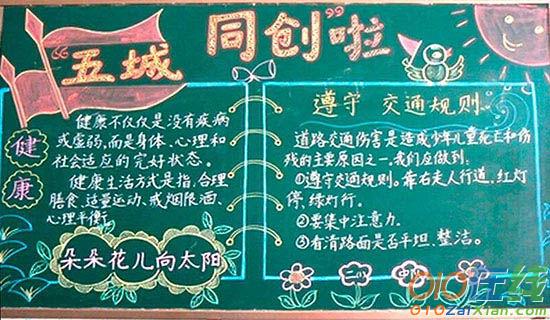 “五城同创”啦
健康
健康不仅仅是没有疾病
或虚弱,而是身体、心理和
社会适应的完好状态。
健康生活方式是指,合理
膳食、适量运动、戒烟限酒、
心理平衡。
朵朵花儿向太阳
遵守 交通规则.
道路交通伤害是造成少年儿童死亡和伤
残的主要原因之一,我们应做到:
①遵守交通规则。靠右走人行道,红灯
停,绿灯行。
②要集中注意力.
③看清路面是否平坦、整洁。
二(1)中队
010在线
010zaixian.com